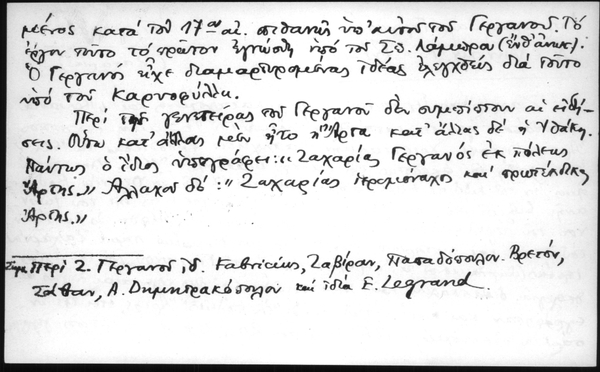 μένος κατά τον 17ον αἰ. πιθανῶς ὑπ' αὐτοῦ τοῦ Γεργανοῦ. Τό
ἔργον τοῦτο τό πρῶτον ἐγνώσθη ὑπό τοῦ Σπ. Λάμπρου (ἔνθ' ἀνωτ.).
Ὁ Γεργανός εἶχε διαμαρτυρομένας ἰδέας ἐλεγχθείς διά τοῦτο
ὑπό τοῦ Καρυοφύλλη.
Περί τῆς γενετείρας τοῦ Γεργανοῦ δέν συμπίπτουν αἱ εἰδή-
σεις. Οὕτω κατ' ἄλλας μέν ἦτο ἡ Ἄρτα κατ' ἄλλας δέ ἡ Ἰθάκη.
Πάντως ὁ ἴδιος ὑπογράφει: «Ζαχαρίας Γεργανός ἐκ πόλεως
Ἄρτης.» Ἀλλαχοῦ δέ: «Ζαχαρίας ἱερομόναχος καί πρωτέκδικος
Ἄρτης.»
Σημ. Περί Ζ. Γεργανοῦ ἰδ. Fabricius, Ζαβίραν, Παπαδόπουλον Βρετόν,
Σάθαν, Α. Δημητρακόπουλον καί ἰδία E. Legrand.